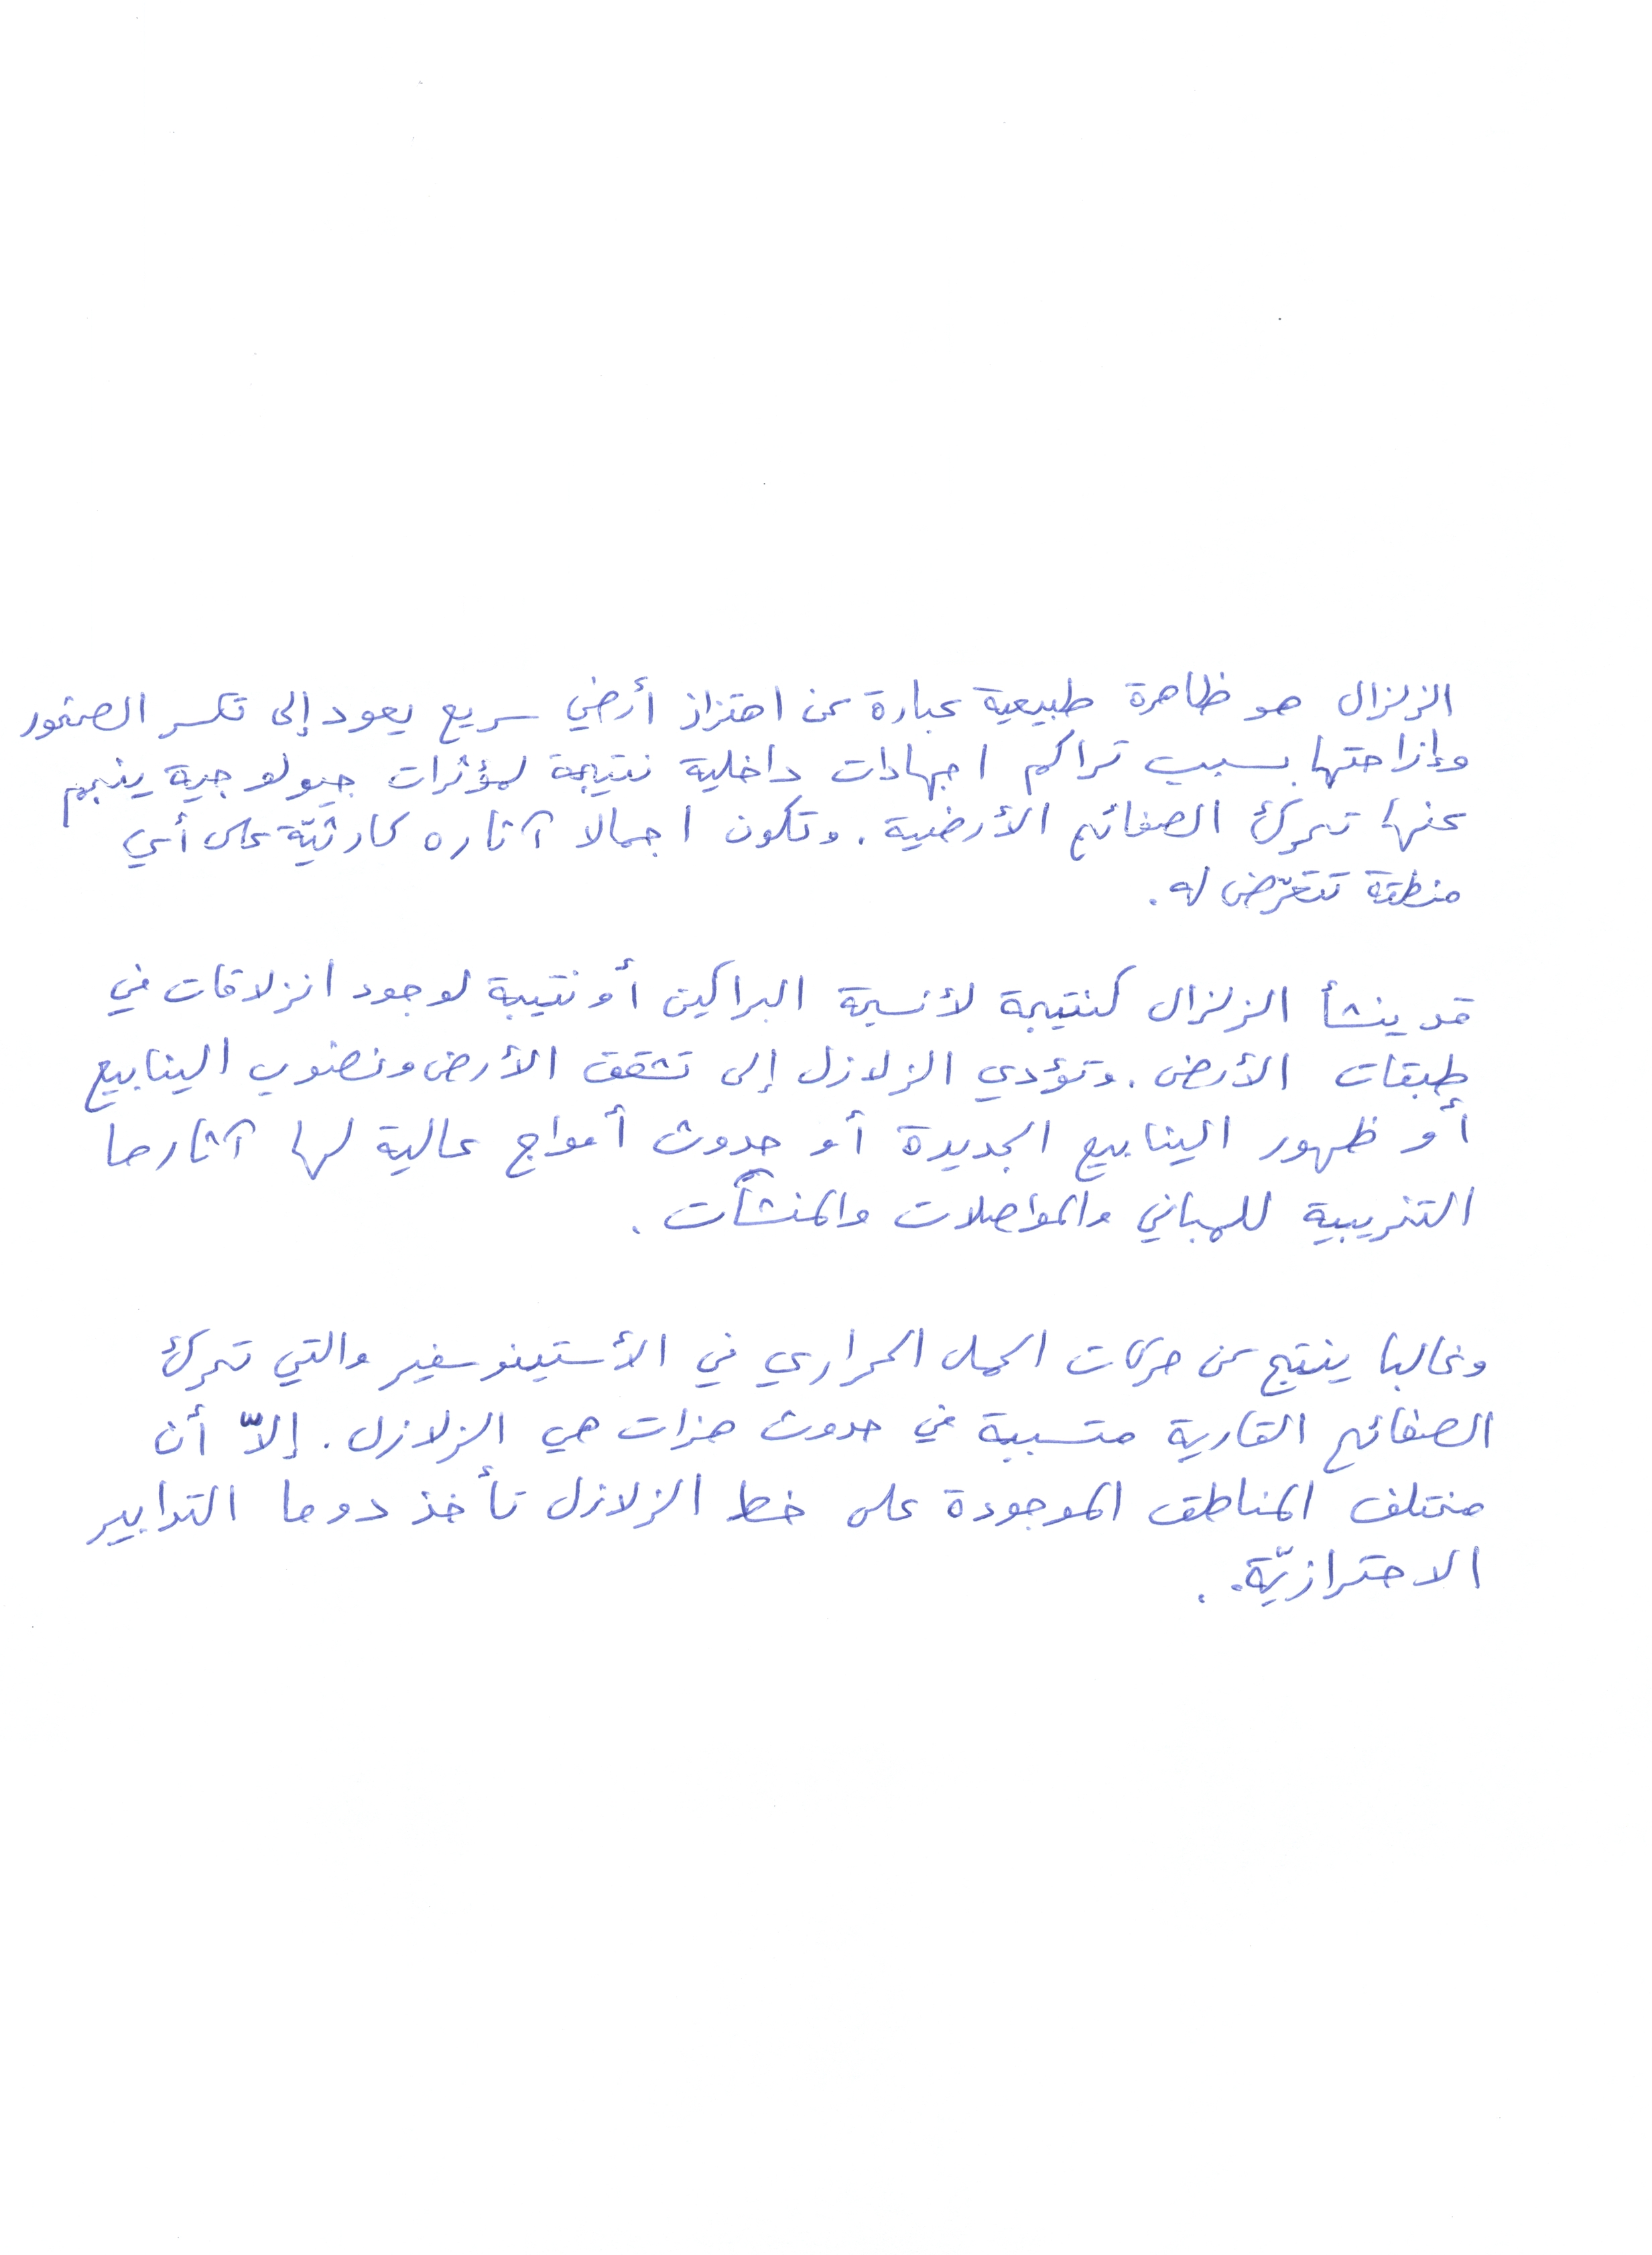 الزلزال هو ظاهرة طبيعية عبارة عن اهتزاز أرضي سريع يعود إلى تكسر الصخور
وإزاحتها بسبب تراكم اجهادات داخلية نتيجة لمؤثرات جيولوجية ينجم
عنها تحرك الصفائح الأرضية. وتكون اجمالا آثاره كارثيّة على أي
منطقة تتعرّض له.
قد ينشأ الزلزال كنتيجة لأنسيحة البراكين أو نتيجة لوجود انزلاقات في
طبقات الأرض. وتؤدي الزلازل إلى تشقق الأرض ونضوب الينابيع
أو ظهور الينابيع الجديدة أو حدوث أمواج عالية لها آثارها
التخريبية للمباني والمواصلات والمنشآت.
وغالبا ينتج عن حركات الحمل الحراري في الأستينوسفير والتي تحرك
الصفائح القارية متسببة في حدوث هزات هي الزلازل. إلاّ أن
مختلف المناطق الموجودة على خط الزلازل تأخذ دوما التدابير
الاحترازيّة.